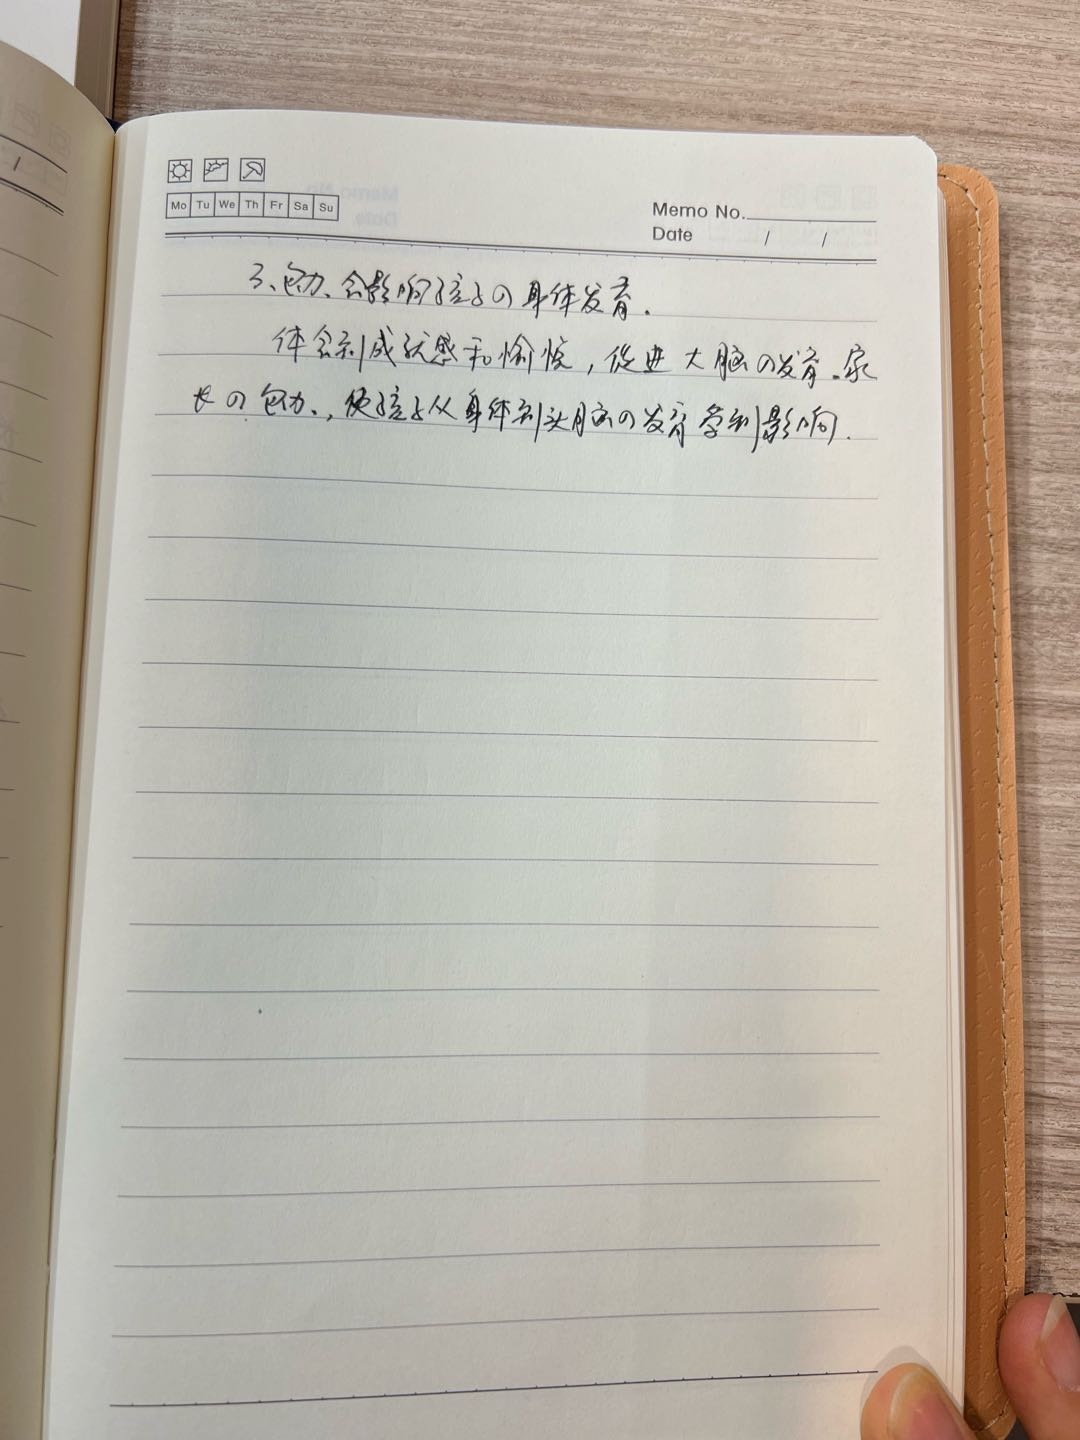 Mo Tu We Th Fr Sa Su
Memo No.
Date / /
3、包办、会影响孩子の身体发育.
体会到成就感和愉悦,促进大脑の发育.家
长の包办.,使孩子从身体到头脑の发育受到影响.